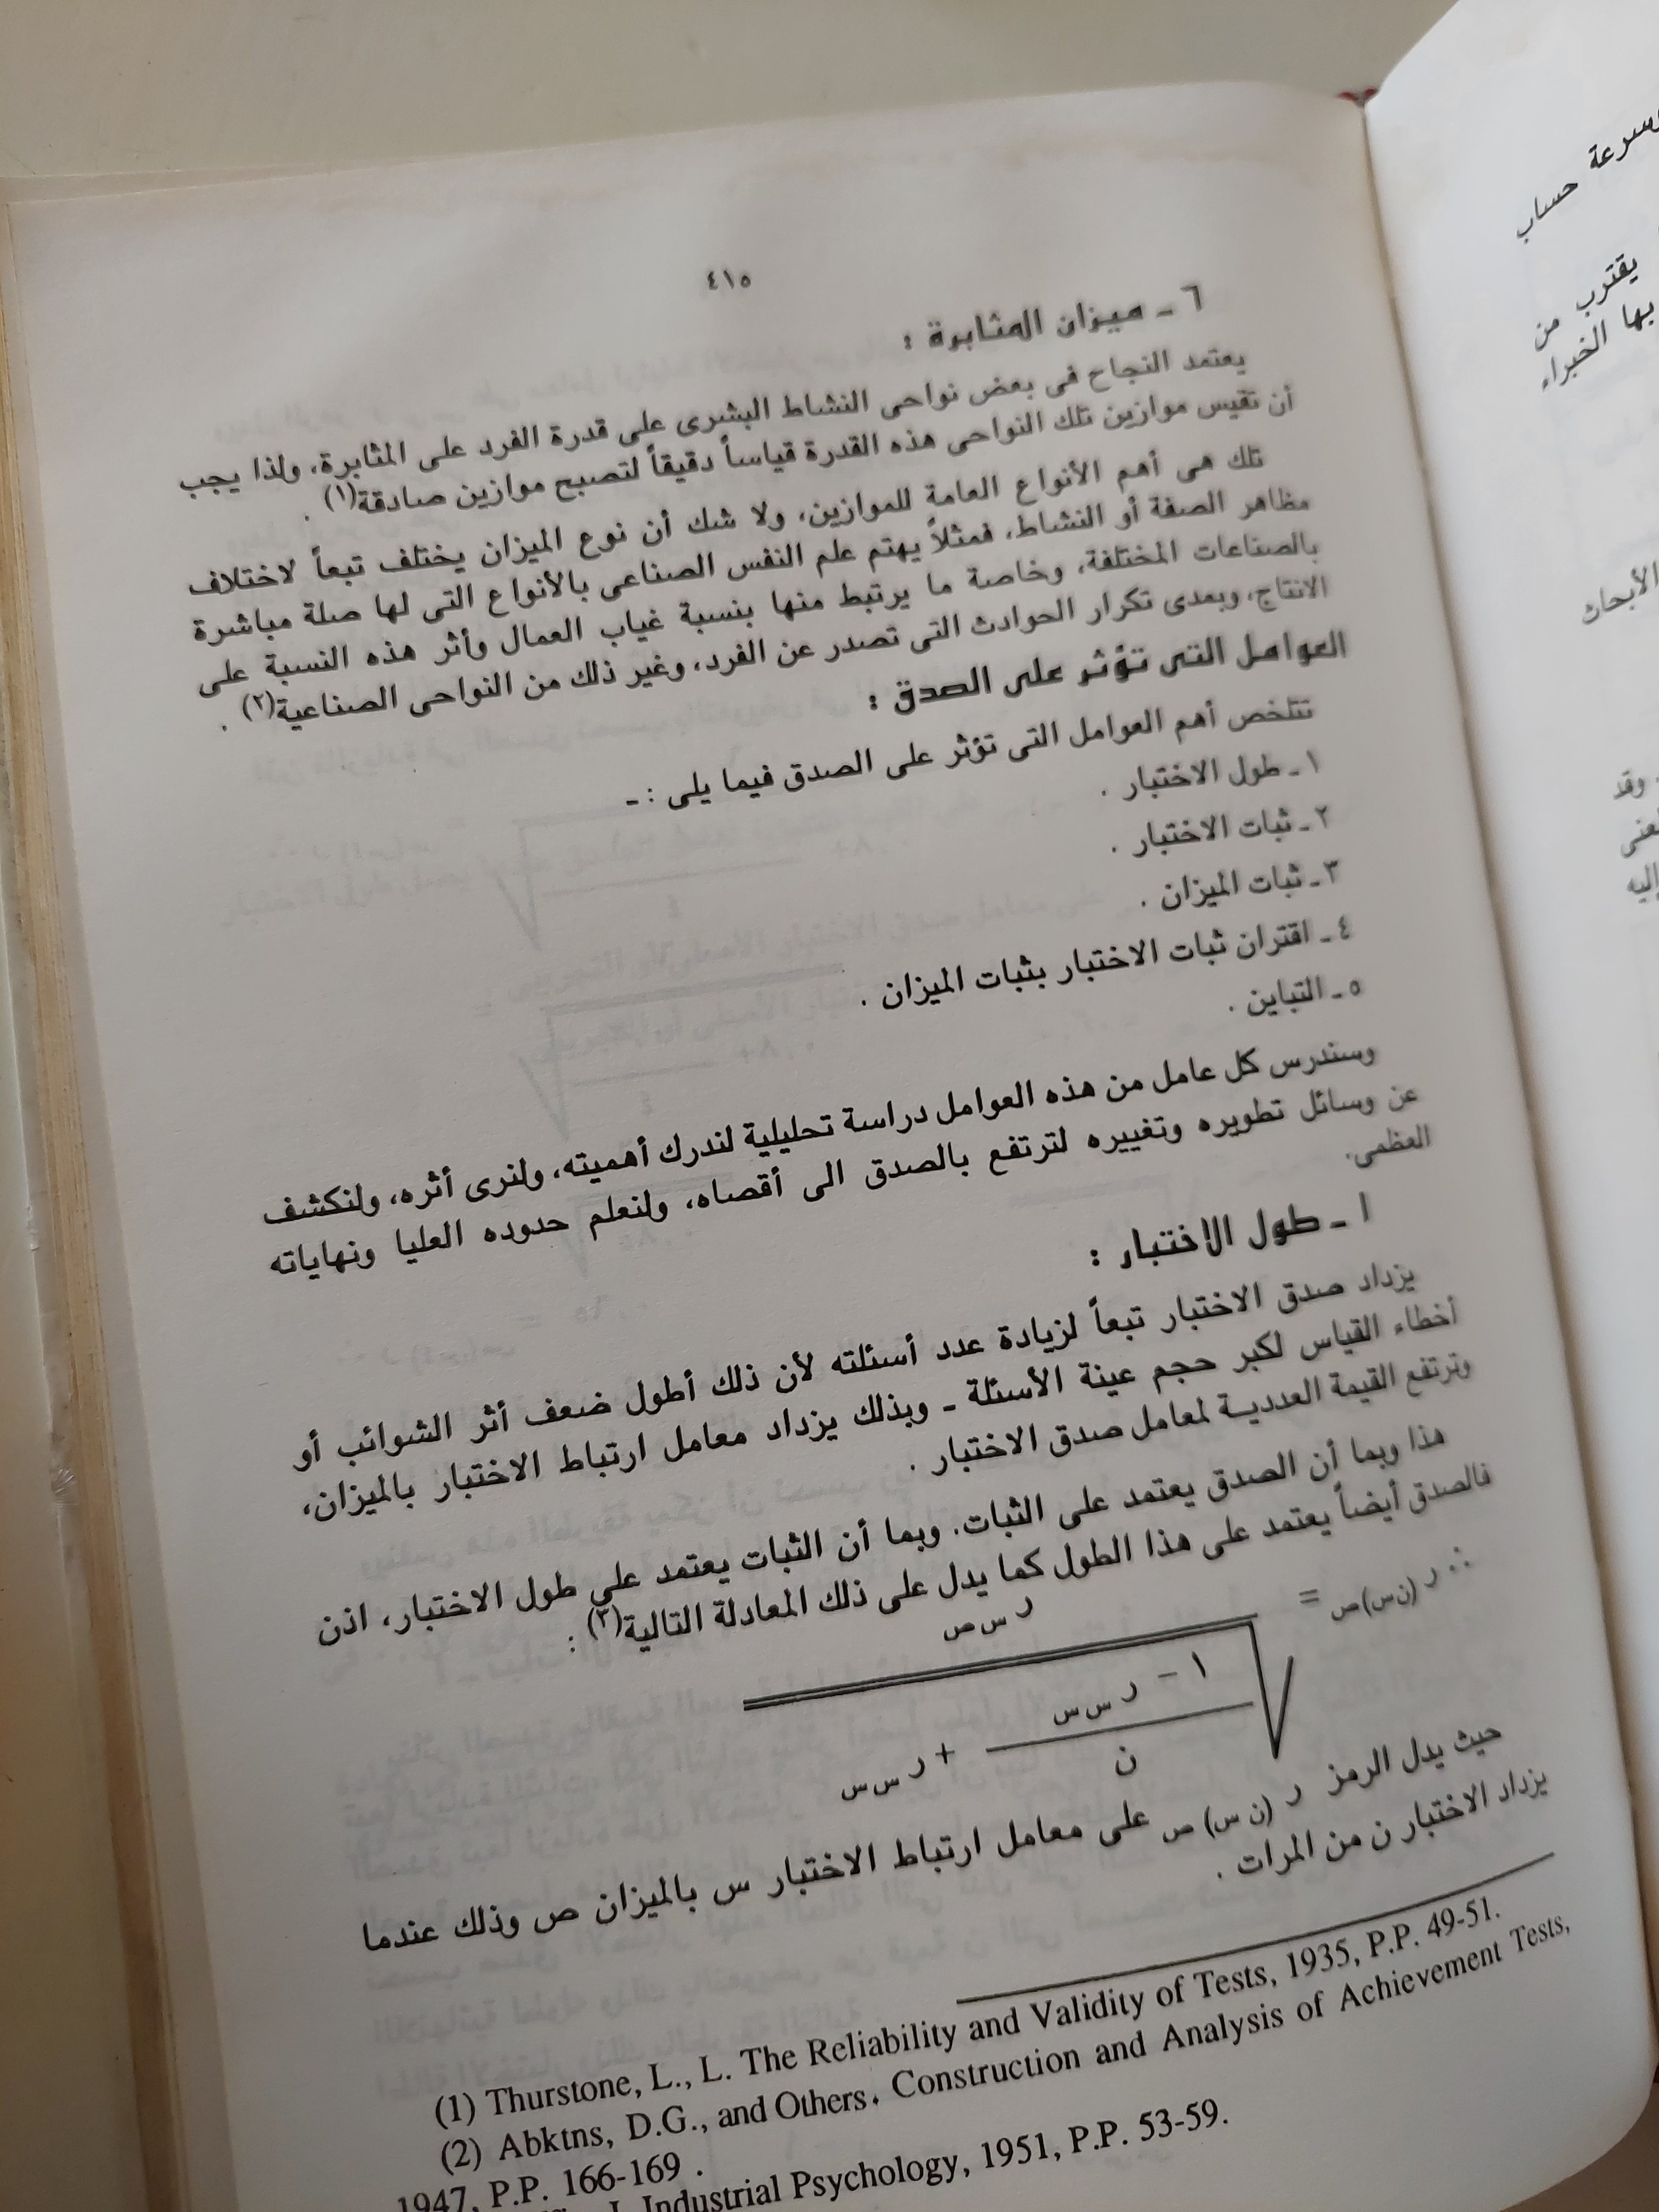 ٤١٥
٦ - ميزان المثابرة :
يعتمد النجاح فى بعض نواحى النشاط البشرى على قدرة الفرد على المثابرة، ولذا يجب
أن تقيس موازين تلك النواحى هذه القدرة قياساً دقيقاً لتصبح موازين صادقة(١) .
تلك هى أهم الأنواع العامة للموازين، ولا شك أن نوع الميزان يختلف تبعاً لاختلاف
مظاهر الصفة أو النشاط، فمثلاً يهتم علم النفس الصناعى بالأنواع التى لها صلة مباشرة
بالصناعات المختلفة، وخاصة ما يرتبط منها بنسبة غياب العمال وأثر هذه النسبة على
الانتاج، وبمدى تكرار الحوادث التى تصدر عن الفرد، وغير ذلك من النواحى الصناعية(٢) .
العوامل التى تؤثر على الصدق :
تتلخص أهم العوامل التى تؤثر على الصدق فيما يلى : -
١ - طول الاختبار .
٢ - ثبات الاختبار .
٣ - ثبات الميزان .
٤ - اقتران ثبات الاختبار بثبات الميزان .
٥ - التباين .
وسندرس كل عامل من هذه العوامل دراسة تحليلية لندرك أهميته، ولنرى أثره، ولنكشف
عن وسائل تطويره وتغييره لترتفع بالصدق الى أقصاه، ولنعلم حدوده العليا ونهاياته
العظمى.
١ - طول الاختبار :
يزداد صدق الاختبار تبعاً لزيادة عدد أسئلته لأن ذلك أطول ضعف أثر الشوائب أو
أخطاء القياس لكبر حجم عينة الأسئلة - وبذلك يزداد معامل ارتباط الاختبار بالميزان،
وترتفع القيمة العددية لمعامل صدق الاختبار .
هذا وبما أن الصدق يعتمد على الثبات. وبما أن الثبات يعتمد على طول الاختبار، اذن
فالصدق أيضاً يعتمد على هذا الطول كما يدل على ذلك المعادلة التالية(٣) :
∴ ر (ن س) ص =
ر س ص
١ - ر س س
ن
+ ر س س
حيث يدل الرمز ر (ن س) ص على معامل ارتباط الاختبار س بالميزان ص وذلك عندما
يزداد الاختبار ن من المرات .
(1) Thurstone, L., L. The Reliability and Validity of Tests, 1935, P.P. 49-51.
(2) Abktns, D.G., and Others. Construction and Analysis of Achievement Tests,
1947, P.P. 166-169 .
J. Industrial Psychology, 1951, P.P. 53-59.
وسرعة حساب
يقترب من
بها الخبراء
الأبحاث
وقد
إليه